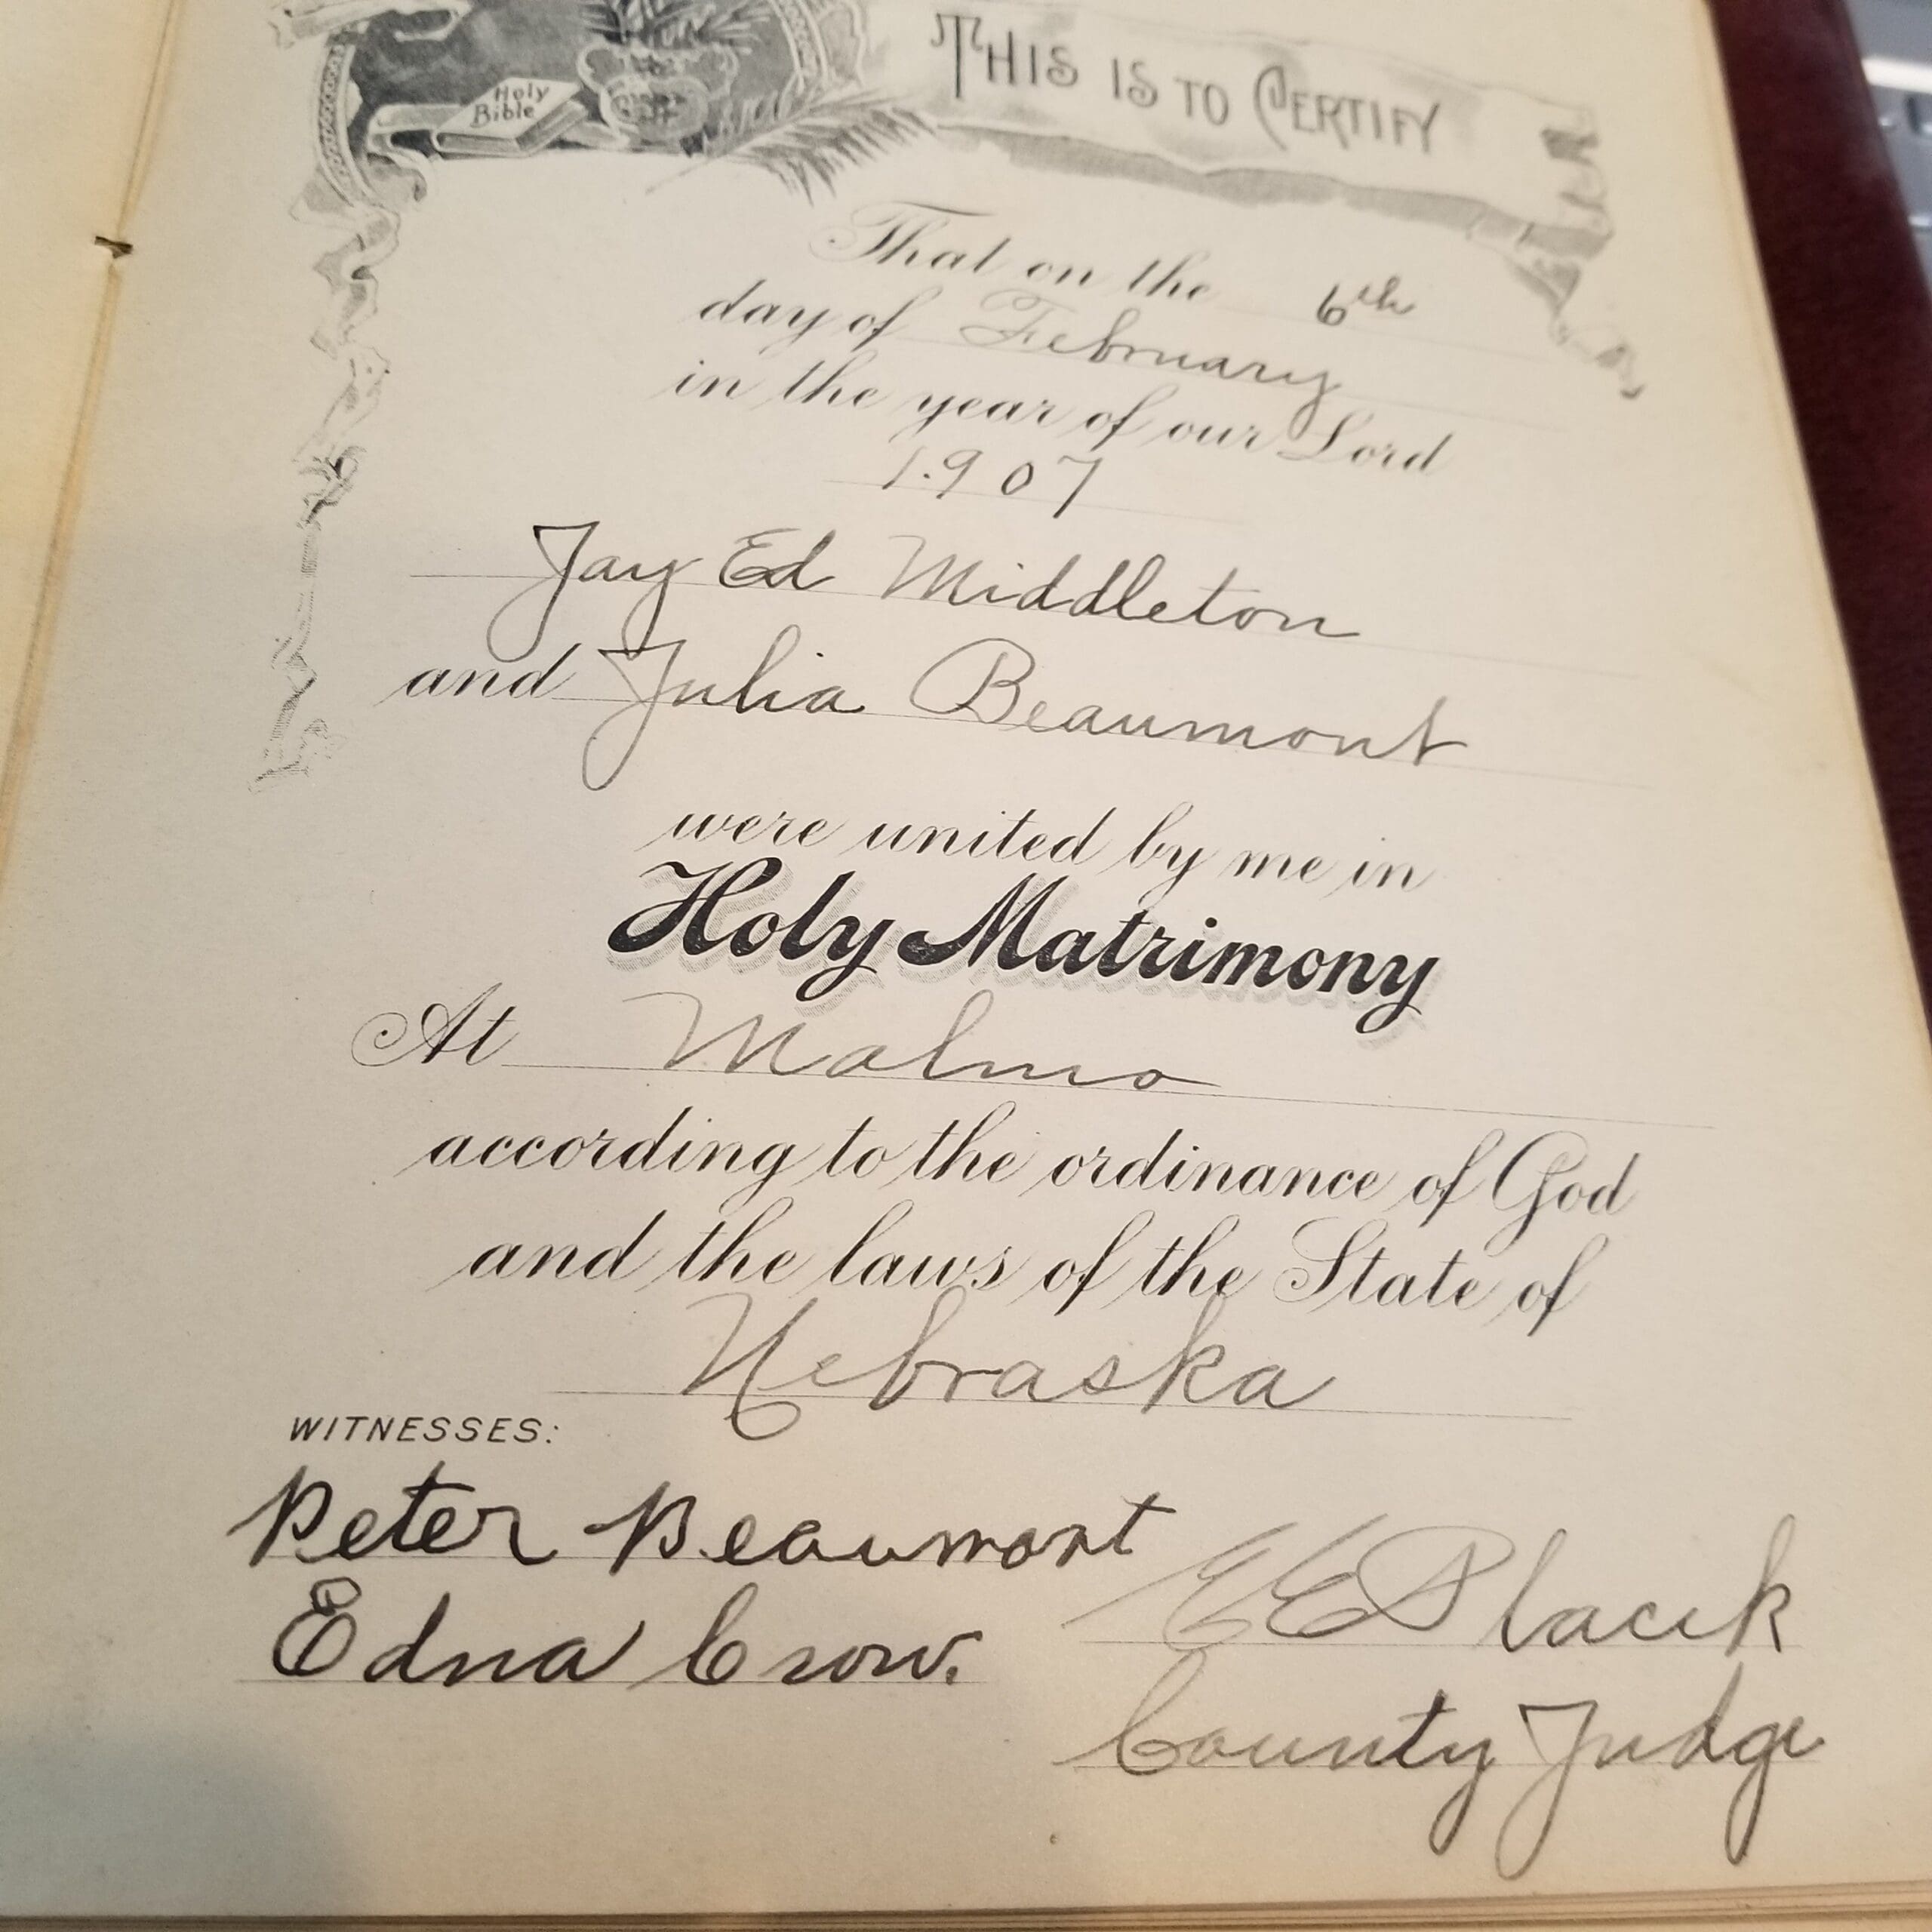 Holy
Bible
THIS IS TO CERTIFY
That on the 6th
day of February
in the year of our Lord
1.907
Jay Ed Middleton
and Julia Beaumont
were united by me in
Holy Matrimony
At Malmo
according to the ordinance of God
and the laws of the State of
Nebraska
WITNESSES:
Peter Beaumont
Edna Crow.
EE Placek
County Judge